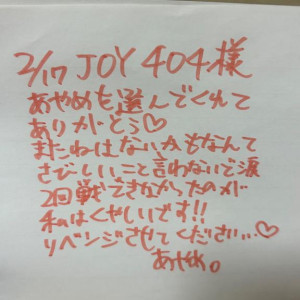 2/17 JOY 404様
あやめを選んでくれて
ありがとう♡
またねはないかもなんて
さびしいこと言わないで涙
2回戦できなかったのが
私はくやしいです!!
リベンジさせてください...♡
あやめ。